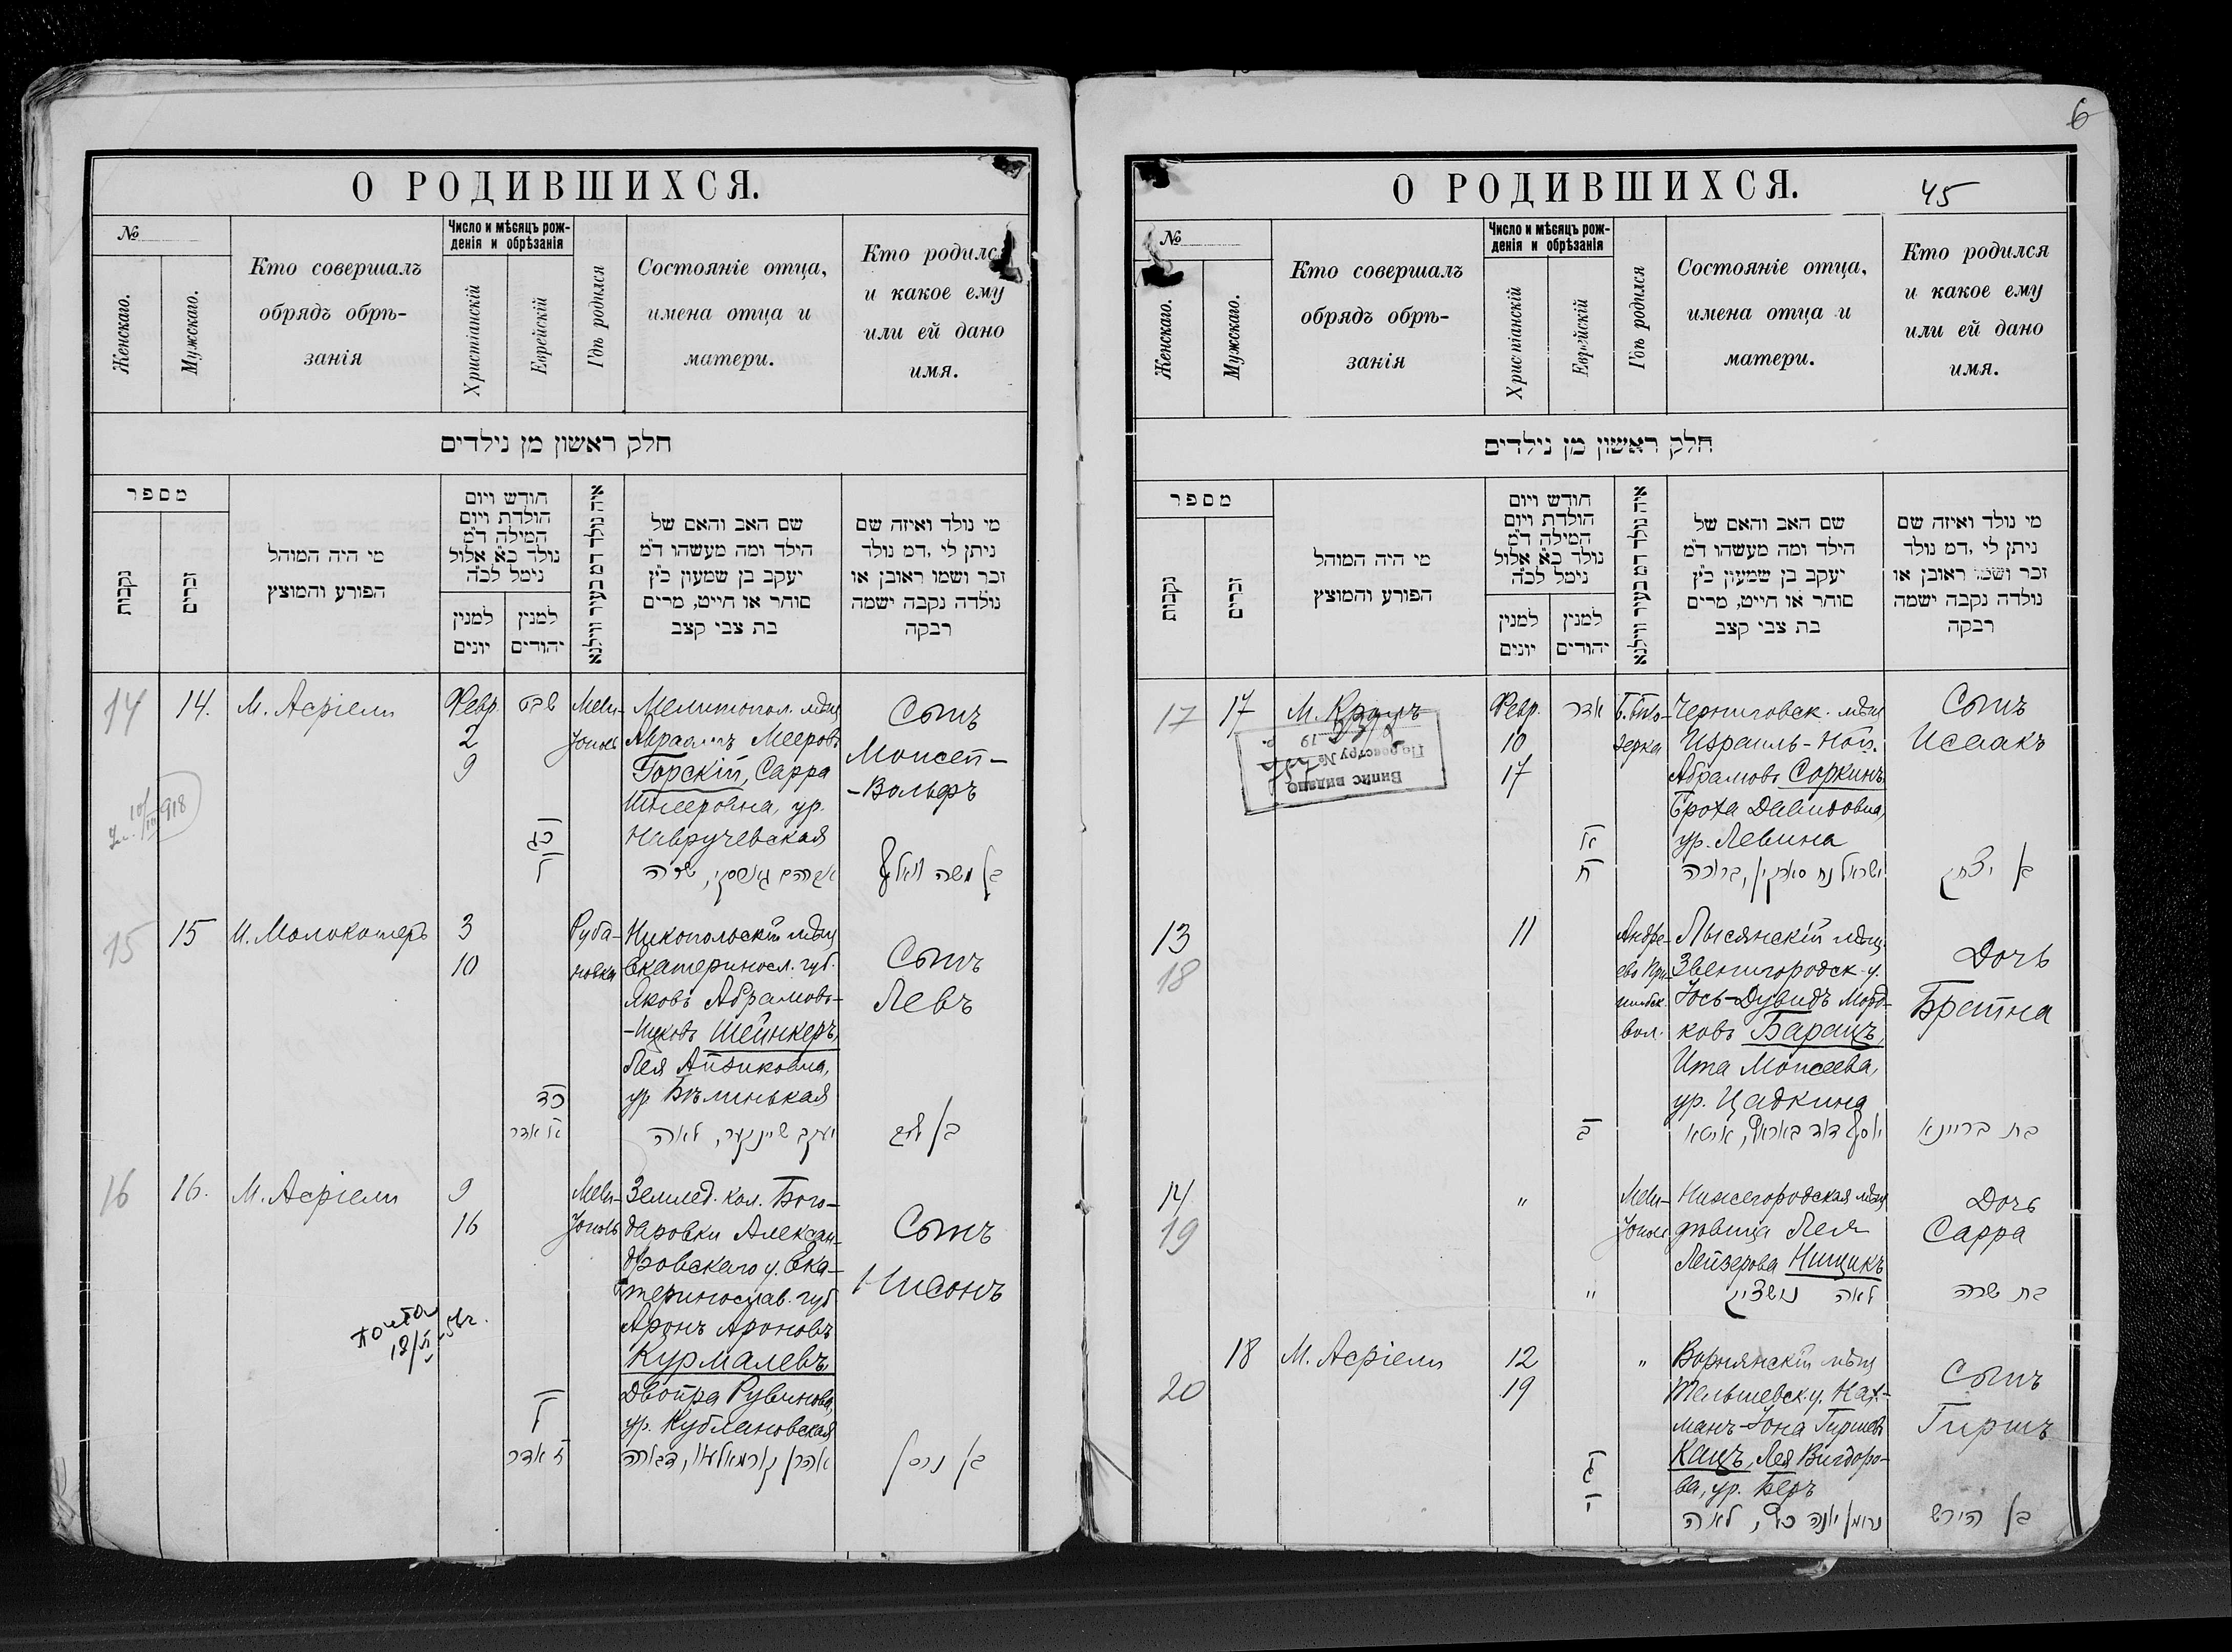 О РОДИВШИХСЯ.
№
Женскаго.
Мужскаго.
Кто совершалъ
обрядъ обрѣ-
занія
Число и мѣсяцъ рож-
денія и обрѣзанія
Христіанскій
Еврейскій
Гдѣ родился
Состояніе отца,
имена отца и
матери.
Кто родился
и какое ему
или ей дано
имя.
חלק ראשון מן נילדים
מספר
נקבות
זכרים
מי היה המוהל
הפורע והמוצץ
חודש ויום
הולדת ויום
המילה ד״מ
נולד כ״א אלול
נימל לכ״ה
למנין
יונים
למנין
יהודים
איה נולד דמ בעיר ווילנא
שם האב והאם של
הילד ומה מעשהו ד״מ
יעקב בן שמעון כ״ץ
סוחר או חייט, מרים
בת צבי קצב
מי נולד ואיזה שם
ניתן לי ,דמ נולד
זכר ושמו ראובן או
נולדה נקבה ישמה
רבקה
14
14.
М. Асріели
Февр.
2
9
שבט
כג
ל
Мели-
тополь
Мелитопол. мѣщ.
Авраамъ Мееровъ
Горскій, Сарра
ур.
Навручевская
אברהם גארסקי, שרה
Сынъ
Моисей-
-Вольфъ
בן משה וואלף
918
15
15
И. Молокотеръ
3
10
כד
א אדר
Руба-
новка
Никопольскій мѣщ.
Екатеринос. губ.
Яковъ Абрамовъ-
-Ицковъ Шейнкеръ,
Лея Айзиковна,
ур. Бѣлинькая
יעקב שיינקער, לאה
Сынъ
Левъ
בן לעוו
16
16.
М. Асріели
9
16
ל
ז אדר
Мели-
тополь
Землед. кол. Бого-
даровки Алексан-
дровскаго у. Ека-
теринослав. губ.
Аронъ Ароновъ
Курмалевъ,
Двойра Рувинова,
ур. Кублановская
אהרן קורמאלעוו, דבורה
Сынъ
Нисонъ
בן ניסן
6
О РОДИВШИХСЯ.
45
№
Женскаго.
Мужскаго.
Кто совершалъ
обрядъ обрѣ-
занія
Число и мѣсяцъ рож-
денія и обрѣзанія
Христіанскій
Еврейскій
Гдѣ родился
Состояніе отца,
имена отца и
матери.
Кто родился
и какое ему
или ей дано
имя.
חלק ראשון מן נילדים
מספר
נקבות
זכרים
מי היה המוהל
הפורע והמוצץ
חודש ויום
הולדת ויום
המילה ד״מ
נולד כ״א אלול
נימל לכ״ה
למנין
יונים
למנין
יהודים
איה נולד דמ בעיר ווילנא
שם האב והאם של
הילד ומה מעשהו ד״מ
יעקב בן שמעון כ״ץ
סוחר או חייט, מרים
בת צבי קצב
מי נולד ואיזה שם
ניתן לי ,דמ נולד
זכר ושמו ראובן או
נולדה נקבה ישמה
רבקה
17
17
М.
Випис видано
По реєстру №
19 р.
Февр.
10
17
אדר
א
ח
Б. Бѣло-
зерка
Черниговск. мѣщ.
Израиль-Ноех
Абрамовъ Соркинъ,
Броха Давидовна,
ур. Левина
ישראל נח סארקין, ברוכה
Сынъ
Исаакъ
בן יצחק
13
18
11
ב
Андре-
ево
вол.
Лысянскій мѣщ.
Звенигородск. у.
Іось-Дувидъ Морд-
ковъ Баращъ,
Ита Моисеева,
ур. Цадкина
יוסף דוד באראש, איטא
Дочь
Брейна
בת בריינא
14
19
"
"
Мели-
тополь
Нижегородская мѣщ.
дѣвица Лея
Лейзерова Нищикъ
לאה נישציק
Дочь
Сарра
בת שרה
18
20
М. Асріели
12
19
"
Ворнянскій мѣщ.
Тельшевск. у. Нах-
манъ-Іона Гиршевъ
Кацъ, Лея Вигдоро-
ва, ур. Беръ
נחמן יונה כץ, לאה
Сынъ
Гиршъ
בן הירש